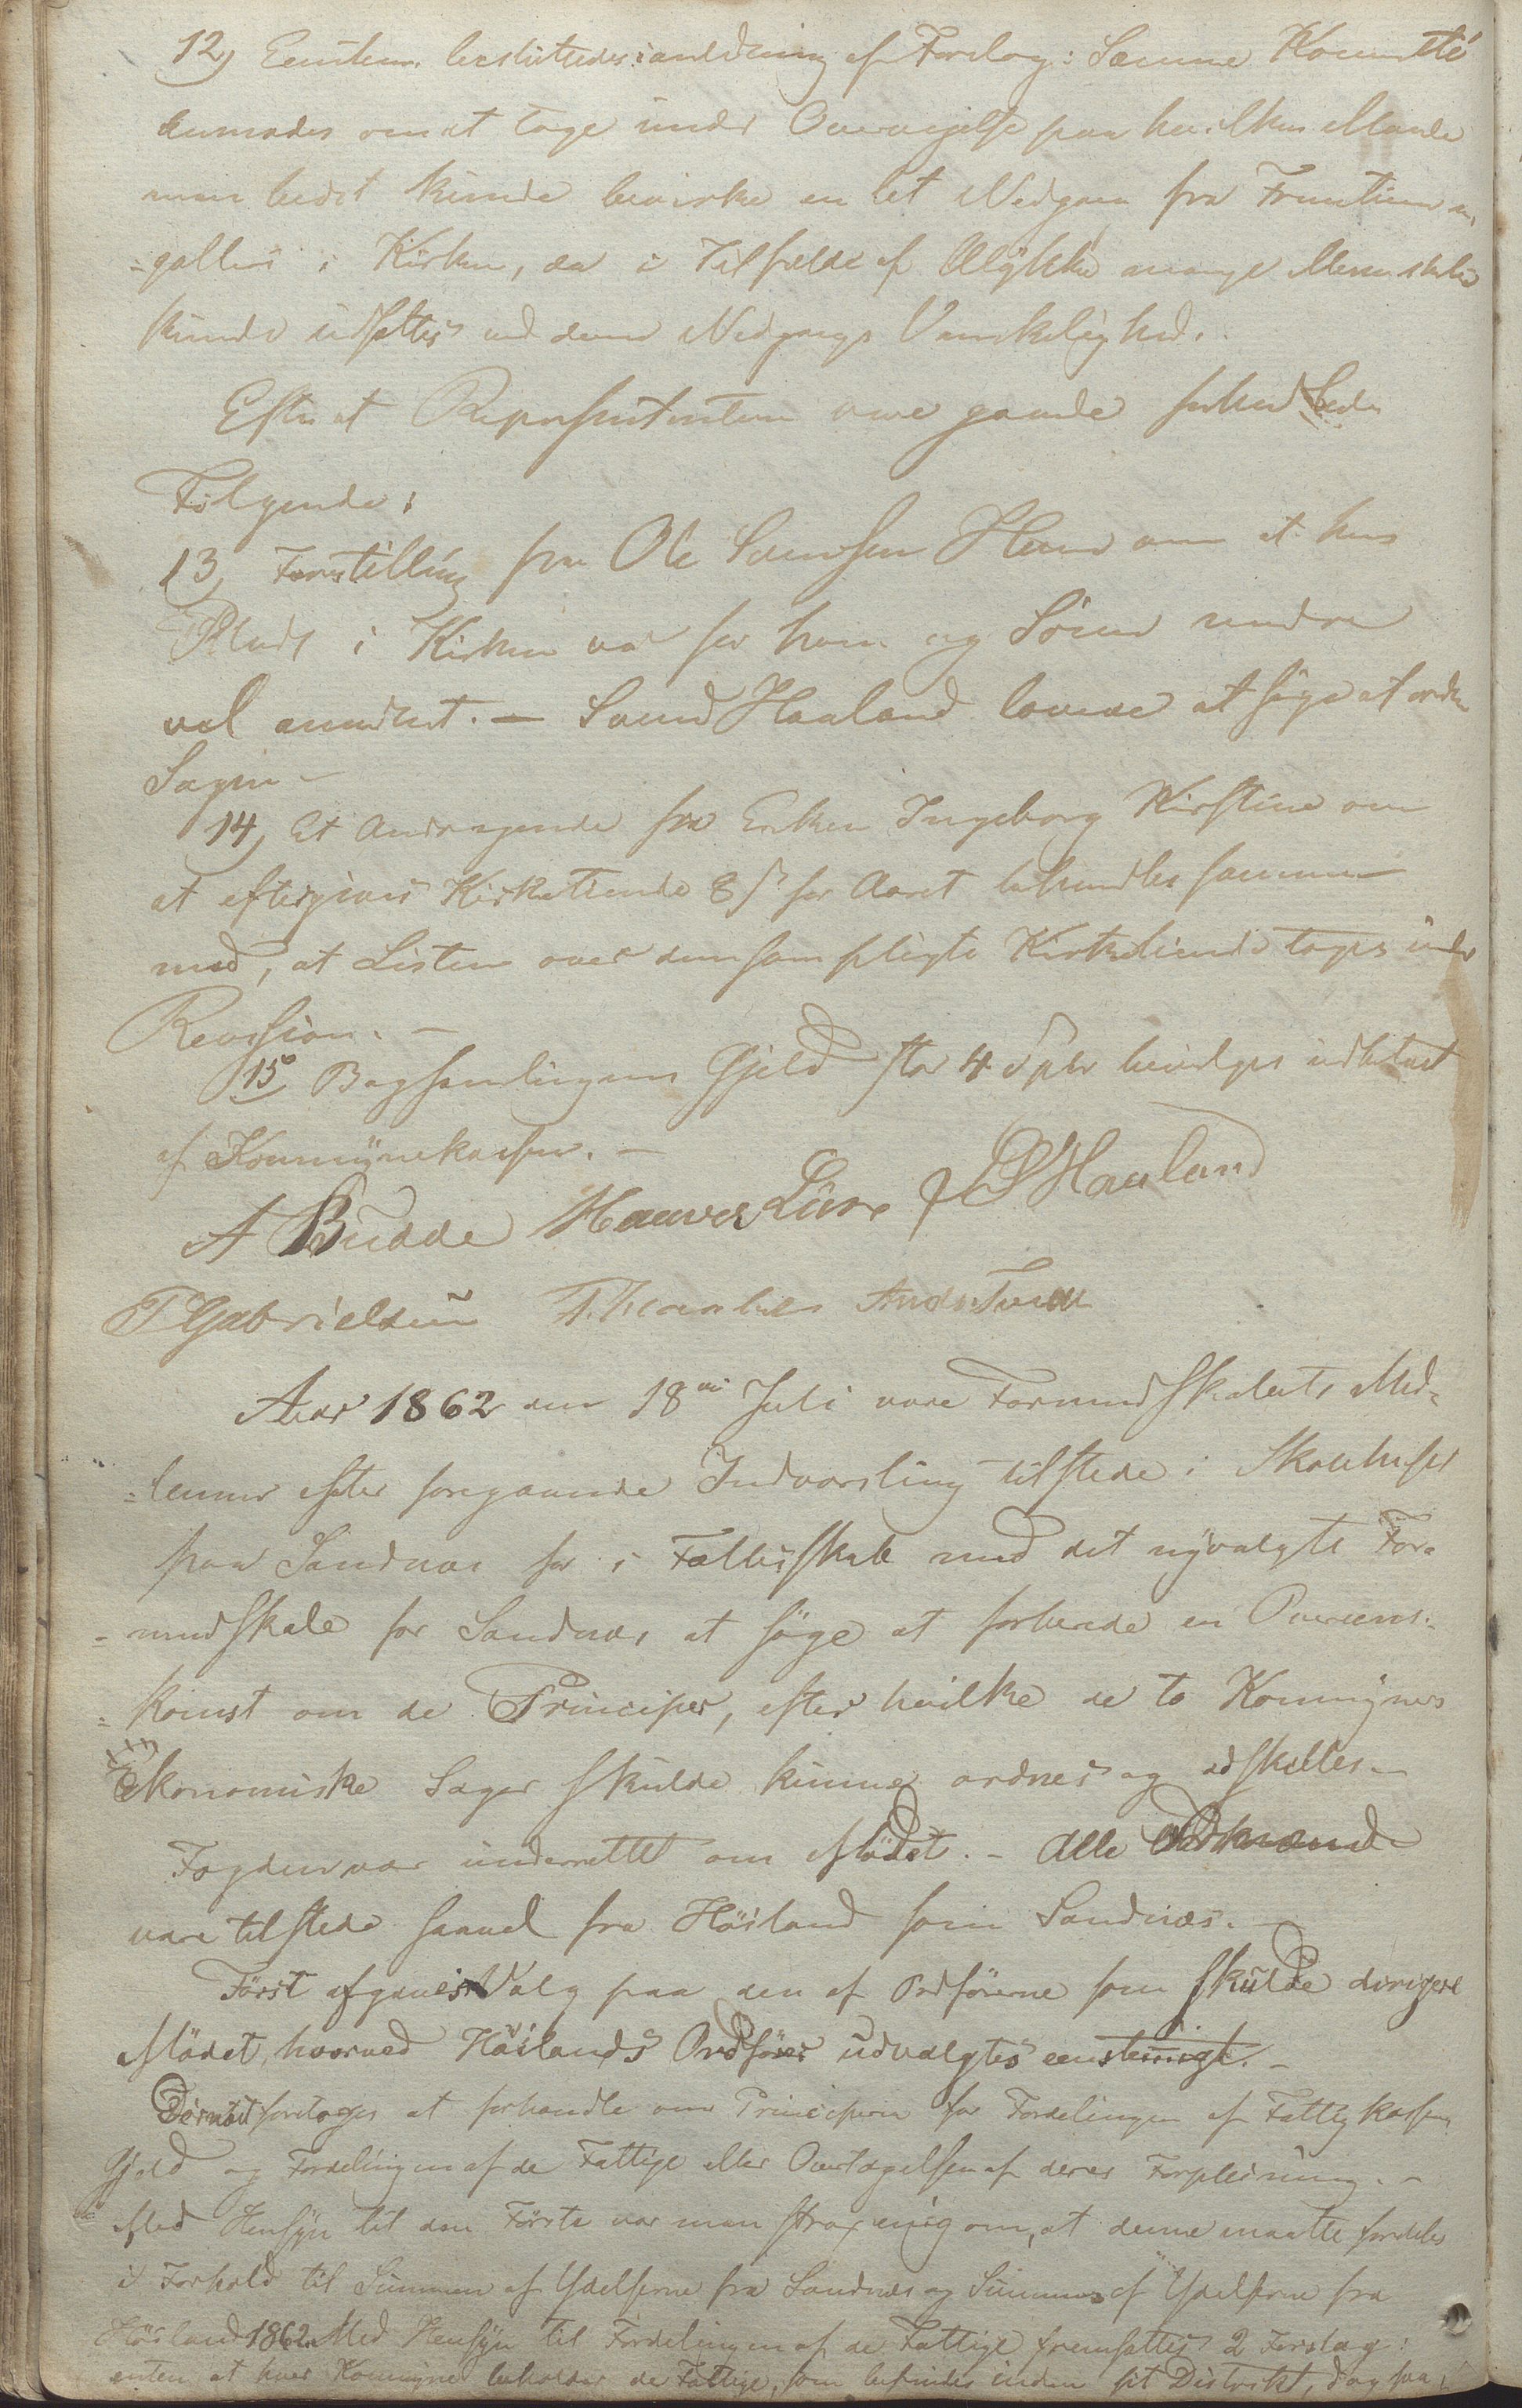 12, Eenstem. besluttedes i anledning af Forslag: Samme Komité
anmodes om at tage under Overveielse paa hvilken Maade
man bedst kunde bevirke en let Nedgang fra Fruentimmer-
-galleri i Kirken, da i Tilfælde af Ulykke mange Mennesker
kunde udsættes ved denne Nedgangs Vanskelighed.
Efter at Repræsentanterne vare gaaede forhandledes
Følgende:
13, Forestilling fra Ole Svendsen Hana om at hans
Plads i Kirken var for ham og Sønner mindre
vel anvendt. — Svend Haaland lovede at søge at ordne
Sagen —
14, Et Andragende fra Enken Ingeborg Kirstine om
at eftergives Kirketiende 8 s for Aaret behandles sammen
med, at Listen over dem som pligte Kirketiende tages under
Revision. —
15, Bogsamlingens Gjeld stor 4 Spdlr bevilges udbetalt
af Kommynekassen. —
A Budde Haaver Lura S Haaland
T Gabrielsen
Aar 1862 den 18de Juli vare Formandskabets Med-
-lemmer efter foregaaende Indvarsling tilstede i Skolehuset
paa Sandnæs for i Fællesskab med det nyvalgte For-
-mandskab for Sandnæs at søge at forberede en Overeens-
-komst om de Principer, efter hvilke de to Kommyners
Økonomiske Sager skulde kunne ordnes og adskilles. —
Fogden var underrettet om Mødet. — Alle Formænd
vare tilstede saavel fra Höiland som Sandnæs. —
Først afgaves Valg paa den af Ordførerne som skulde dirigere
Mødet, hvorved Höilands Ordfører udvalgtes eenstemmigt. —
Dernæst foretoges at forhandle om Principerne for Fordelingen af Fattigkassens
Gjeld og Fordelingen af de Fattige eller Overtagelsen af deres Forpleining. —
Med Hensyn til den Første var man strax enig om, at denne maatte fordeles
i Forhold til Summen af Ydelserne fra Sandnæs og Summen af Ydelserne fra
Höiland 1862. Med Hensyn til Fordelingen af de Fattige fremsattes 2 Forslag:
enten at hver Kommyne beholder de Fattige, som befindes inden sit Distrikt, dog saa